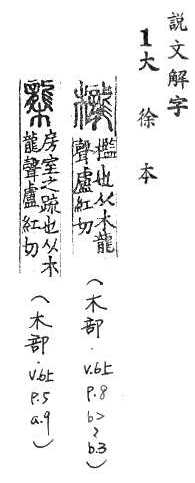 説文解字
1大徐本
櫳 檻也从木龍
聲盧紅切
（木部．v.6上
p.8
b2
~
b.3）
櫳 房室之疏也从木
龍聲盧紅切
（木部．v.6上
p.5
a.9）